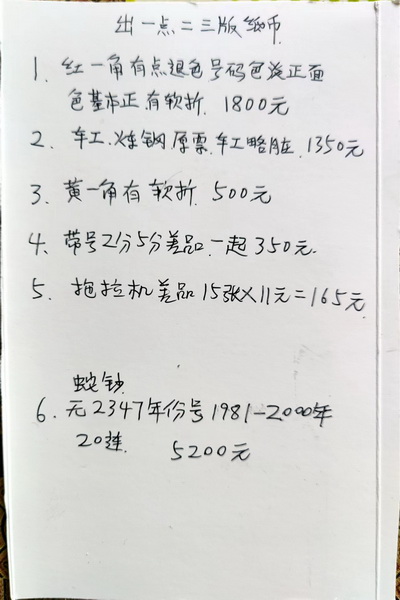 出一点二三版纸币
1. 红一角有点退色号码色淡正面
色基本正有软折. 1800元
2. 车工.炼钢原票.车工略脏. 1350元
3. 黄一角有软折. 500元
4. 带号2分5分差品.一起350元.
5. 拖拉机差品15张×11元=165元
蛇钞
6. 无2347年份号1981-2000年
20连. 5200元